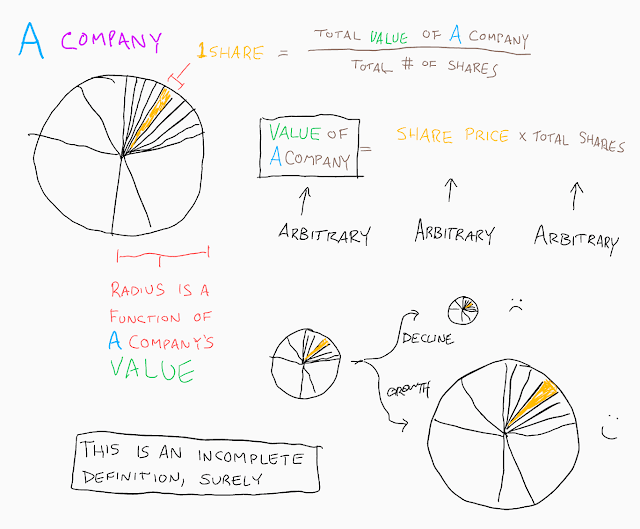 A COMPANY
1 SHARE = TOTAL VALUE OF A COMPANY
TOTAL # OF SHARES
VALUE OF
A COMPANY
= SHARE PRICE x TOTAL SHARES
ARBITRARY
ARBITRARY
ARBITRARY
RADIUS IS A
FUNCTION OF
A COMPANY'S
VALUE
DECLINE
GROWTH
THIS IS AN INCOMPLETE
DEFINITION, SURELY